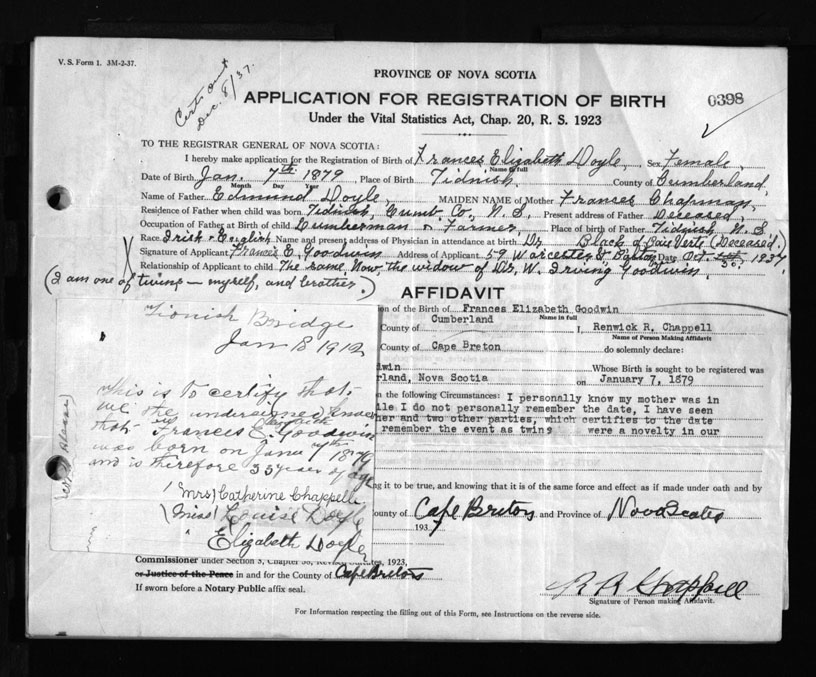 V. S. Form 1. 3M-2-37.
Cert. out
Dec. 8/37.
PROVINCE OF NOVA SCOTIA
APPLICATION FOR REGISTRATION OF BIRTH
0398
Under the Vital Statistics Act, Chap. 20, R. S. 1923
TO THE REGISTRAR GENERAL OF NOVA SCOTIA:
I hereby make application for the Registration of Birth of Frances Elizabeth Doyle, Sex Female,
Name in full
Date of Birth Jan. 7th 1879 Place of Birth Tidnish, County of Cumberland,
Month Day Year
Name of Father Edmund Doyle, MAIDEN NAME of Mother Frances Chapman,
Residence of Father when child was born Tidnish, Cumb. Co., N. S. Present address of Father Deceased,
Occupation of Father at Birth of child Lumberman & Farmer, Place of birth of Father Tidnish N. S
Race Irish & English Name and present address of Physician in attendance at Birth Dr. Black of Baie Verte (Deceased).
Signature of Applicant Frances E. Goodwin Address of Applicant 59 Worcester St Boston Date Oct. 30. 1937
Relationship of Applicant to child The same, Now, the widow of Dr. W. Irving Goodwin.
(I am one of twins — myself, and brother.)
AFFIDAVIT
on of the Birth of Frances Elizabeth Goodwin
Name in full
Cumberland
County of I, Renwick R. Chappell
Name of Person Making Affidavit
County of Cape Breton do solemnly declare:
dwin Whose Birth is sought to be registered was
rland, Nova Scotia on January 7, 1879
n the following Circumstances: I personally know my mother was in
ile I do not personally remember the date, I have seen
her and two other parties, which certifies to the date
remember the event as twins were a novelty in our
ng it to be true, and knowing that it is of the same force and effect as if made under oath and by
County of Cape Breton and Province of Nova Scotia
1937
Commissioner under Section 3, Chapter 38, Revised Statutes, 1923,
or Justice of the Peace in and for the County of Cape Breton
If sworn before a Notary Public affix seal.
R R Chappell
Signature of Person making Affidavit.
For Information respecting the filling out of this Form, see Instructions on the reverse side.
Bridge
Jan 8 1912
This is to certify that
we the undersigned know
that Francis E. Goodwin
Elizabeth
was born on Jany 7th 1879
and is therefore 33 years of age
(Mrs) Catherine Chappell
(Miss) Louise Doyle
Elizabeth Doyle